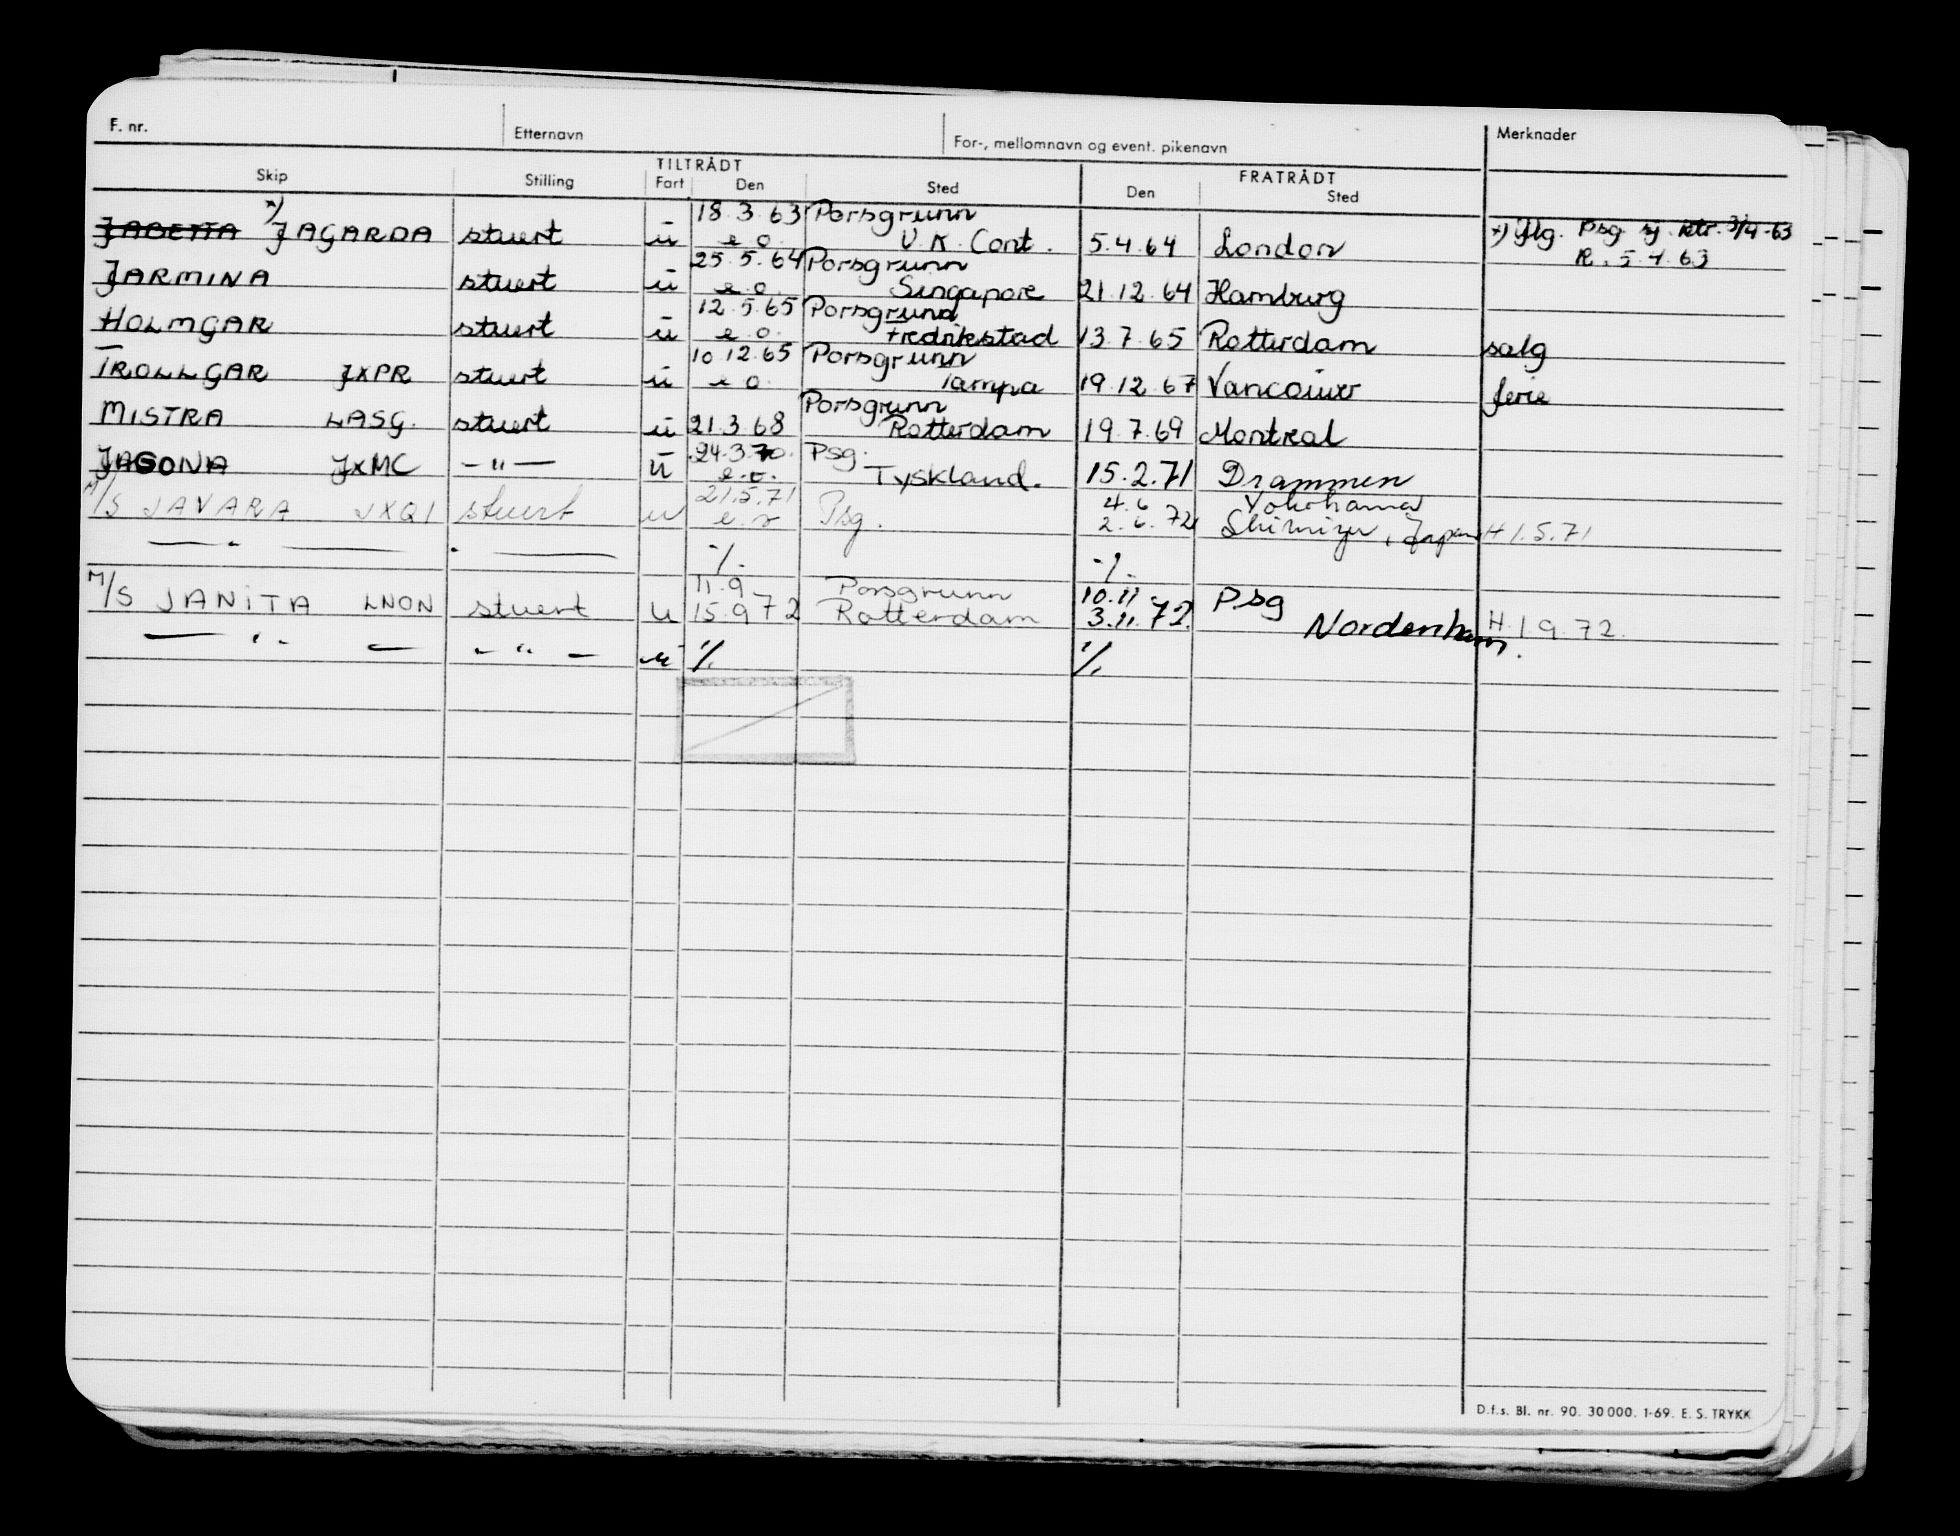 F. nr. Etternavn For-, mellomnavn og event. pikenavn Merknader
TILTRÅDT FRATRÅDT
Skip Stilling Fart Den Sted Den Sted
18.3.63 Porsgrunn
JABETTA x) JAGARDA stuert u e.o. U.K. Cont. 5.4.64 London x) Psg sj. ktr. 3/4-63
R. 5.4.63
25.5.64 Porsgrunn
JARMINA stuert u e.o. Singapore 21.12.64 Hamburg
12.5.65 Porsgrund
HOLMGAR stuert u e.o. Fredrikstad 13.7.65 Rotterdam salg
10.12.65 Porsgrunn
TROLLGAR JXPR stuert u e.o. Tampa 19.12.67 Vancouver ferie
Porsgrunn
MISTRA LASG. stuert u 21.3.68 Rotterdam 19.7.69 Montreal
24.3.70. Psg.
JAGONA JXMC - " - u e.o. Tyskland. 15.2.71 Drammen
21.5.71 4.6 Yokohama
M/S JAVARA JXQI stuert u Psg. 2.6.72 Shimizu, Japan H 1.5.71
— " — " — -/- -/-
11.9 Porsgrunn 10.11 Psg
M/S JANITA LNON stuert u 15.9.72 Rotterdam 3.11.72. Nordenham. H. 1.9.72.
— " — - " - u -/- -/-
D.f.s. Bl. nr. 90. 30 000. 1-69. E. S. TRYKK